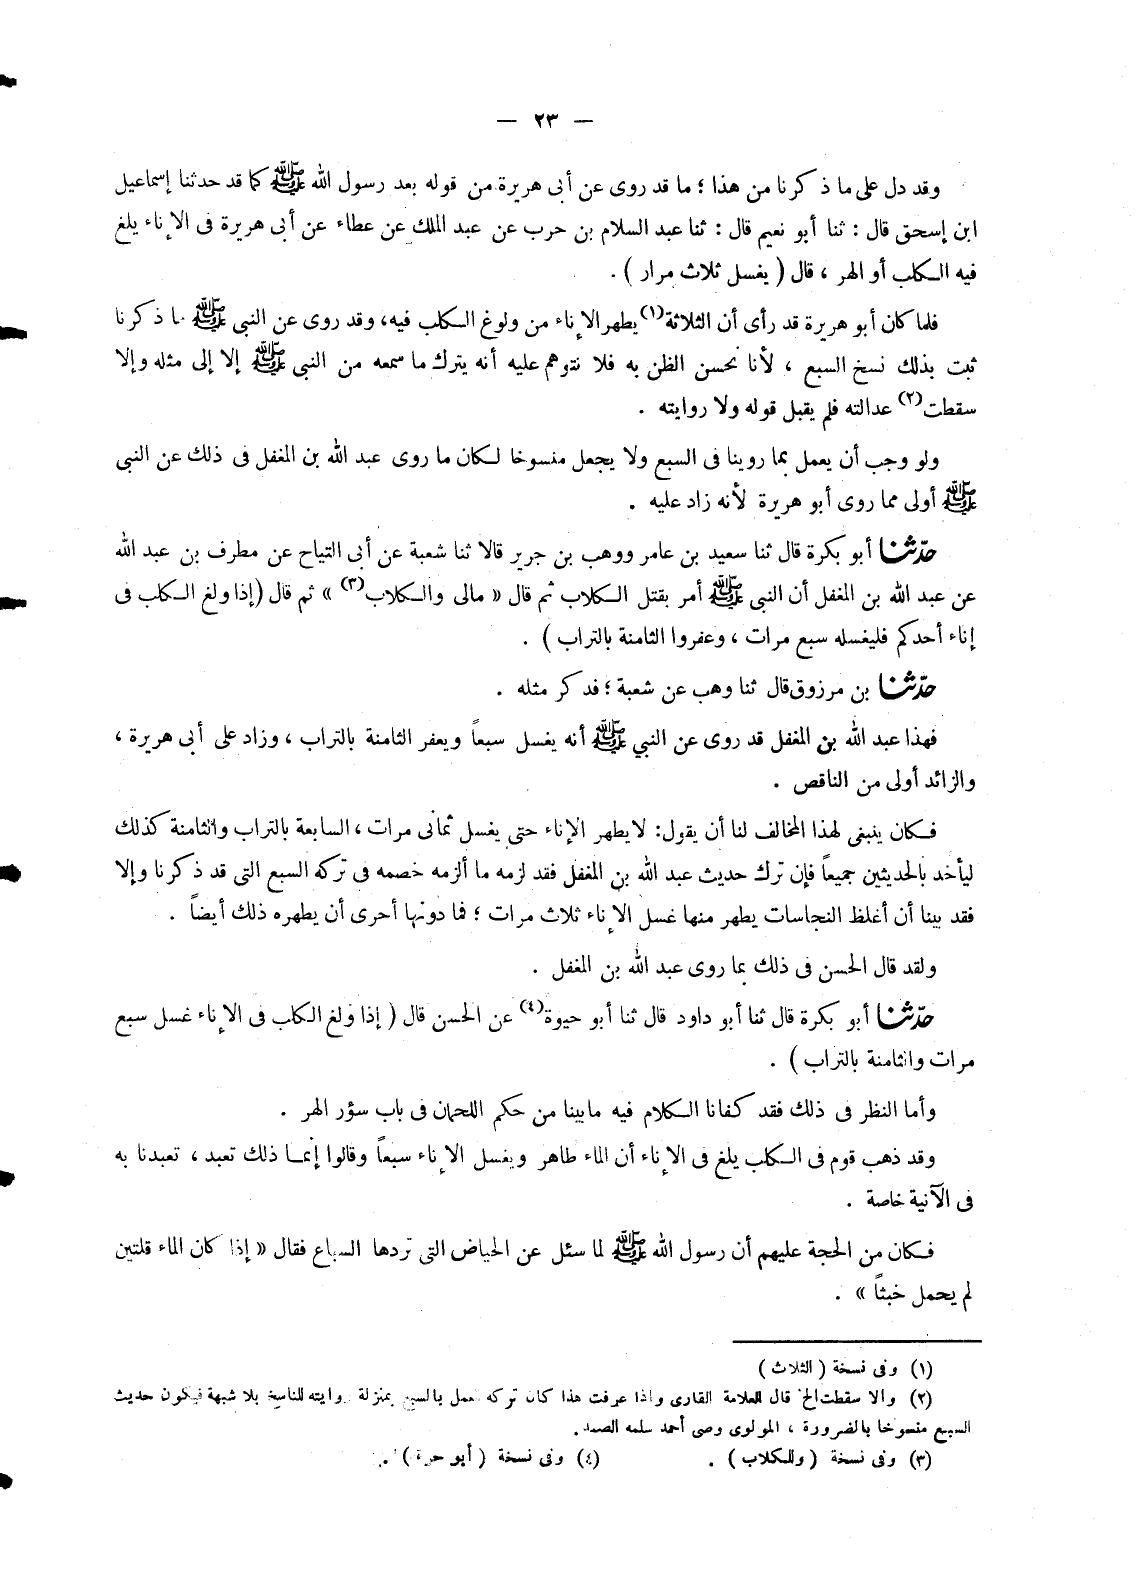 — ٢٣ —
وقد دل على ما ذكرنا من هذا ؛ ما قد روى عن أبى هريرة من قوله بعد رسول الله ﷺ كما قد حدثنا إسماعيل
ابن إسحق قال : ثنا أبو نعيم قال : ثنا عبد السلام بن حرب عن عبد الملك عن عطاء عن أبى هريرة فى الإناء يلغ
فيه الكلب أو الهر ، قال ( يغسل ثلاث مرار ) .
فلما كان أبو هريرة قد رأى أن الثلاثة(١) يطهر الإناء من ولوغ الكلب فيه، وقد روى عن النبى ﷺ ما ذكرنا
ثبت بذلك نسخ السبع ، لأنا نحسن الظن به فلا نتوهم عليه أنه يترك ما سمعه من النبى ﷺ إلا إلى مثله وإلا
سقطت(٢) عدالته فلم يقبل قوله ولا روايته .
ولو وجب أن يعمل بما روينا فى السبع ولا يجعل منسوخا لكان ما روى عبد الله بن المغفل فى ذلك عن النبى
ﷺ أولى مما روى أبو هريرة لأنه زاد عليه .
حدّثنا أبو بكرة قال ثنا سعيد بن عامر ووهب بن جرير قالا ثنا شعبة عن أبى التياح عن مطرف بن عبد الله
عن عبد الله بن المغفل أن النبى ﷺ أمر بقتل الكلاب ثم قال « مالى والكلاب(٣) » ثم قال (إذا ولغ الكلب فى
إناء أحدكم فليغسله سبع مرات ، وعفروا الثامنة بالتراب ) .
حدّثنا بن مرزوق قال ثنا وهب عن شعبة ؛ فذكر مثله .
فهذا عبد الله بن المغفل قد روى عن النبي ﷺ أنه يغسل سبعاً ويعفر الثامنة بالتراب ، وزاد على أبى هريرة ،
والزائد أولى من الناقص .
فكان ينبغى لهذا المخالف لنا أن يقول: لا يطهر الإناء حتى يغسل ثمانى مرات ، السابعة بالتراب والثامنة كذلك
ليأخد بالحديثين جميعاً فإن ترك حديث عبد الله بن المغفل فقد لزمه ما ألزمه خصمه فى تركه السبع التى قد ذكرنا وإلا
فقد بينا أن أغلظ النجاسات يطهر منها غسل الإناء ثلاث مرات ؛ فما دونها أحرى أن يطهره ذلك أيضاً .
ولقد قال الحسن فى ذلك بما روى عبد الله بن المغفل .
حدّثنا أبو بكرة قال ثنا أبو داود قال ثنا أبو حيوة(٤) عن الحسن قال ( إذا ولغ الكلب فى الإناء غسل سبع
مرات والثامنة بالتراب ) .
وأما النظر فى ذلك فقد كفانا الكلام فيه ما بينا من حكم اللحمان فى باب سؤر الهر .
وقد ذهب قوم فى الكلب يلغ فى الإناء أن الماء طاهر ويغسل الإناء سبعاً وقالوا إنما ذلك تعبد ، تعبدنا به
فى الآنية خاصة .
فكان من الحجة عليهم أن رسول الله ﷺ لما سئل عن الحياض التى تردها السباع فقال « إذا كان الماء قلتين
لم يحمل خبثاً » .
(١) وفى نسخة ( الثلاث )
(٢) والا سقطت الخ قال العلامة القارى واذا عرفت هذا كان تركه العمل بالسبع بمنزلة روايته للناسخ بلا شبهة فيكون حديث
السبع منسوخا بالضرورة ، المولوى وصى أحمد سلمه الصمد.
(٣) وفى نسخة ( وللكلاب ) . (٤) وفى نسخة ( أبو حرة ) .